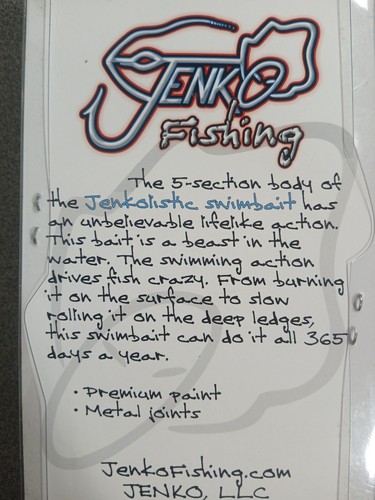 JENKO
Fishing
The 5-section body of
the Jenkolistic swimbait has
an unbelievable lifelike action.
This bait is a beast in the
water. The swimming action
drives fish crazy. From burning
it on the surface to slow
rolling it on the deep ledges,
this swimbait can do it all 365
days a year.
• Premium paint
• Metal joints
JenkoFishing.com
JENKO, LLC